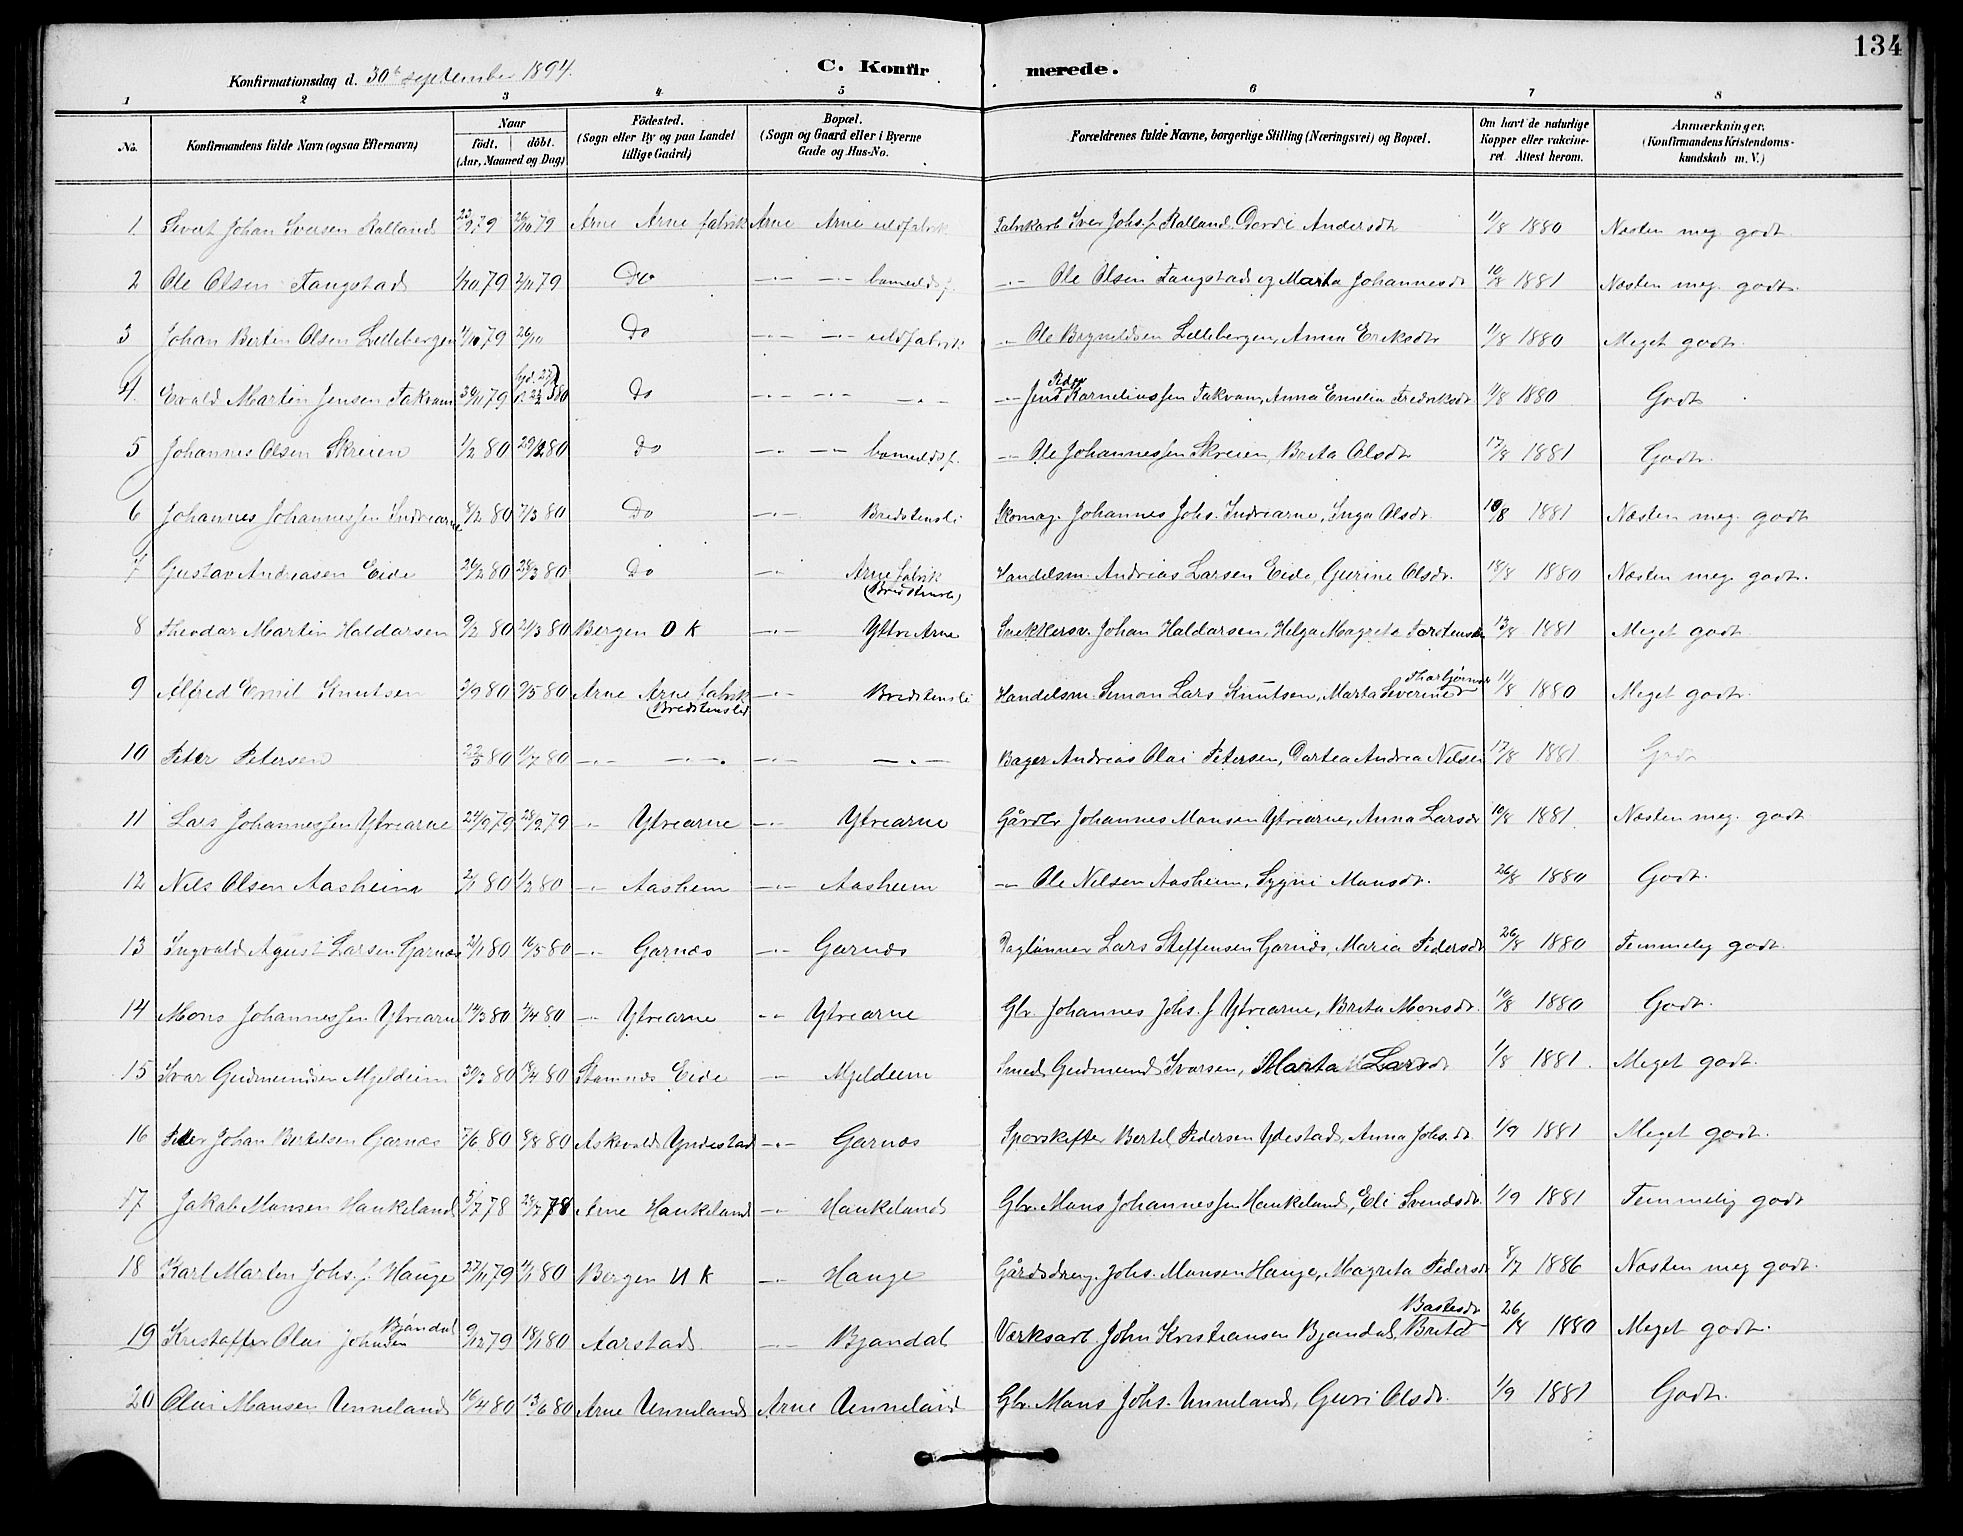 134
Konfirmationsdag d. 30te september 1894. C. Konfirmerede.
1 2 3 4 5 6 7 8
No. Konfirmandens fulde Navn (ogsaa Efternavn) Naar født. døbt. (Aar, Maaned og Dag) Födested. (Sogn eller By og paa Landet tillige Gaard) Bopæl. (Sogn og Gaard eller i Byerne Gade og Hus-No. Forældrenes fulde Navne, borgerlige Stilling (Næringsvei) og Bopæl. Om havt de naturlige Kopper eller vakcineret. Attest herom. Anmærkninger. (Konfirmandens Kristendomskundskab m. V.)
1. Sivert Johan Iversen Kalland 22/9 79 26/10 79 Arne Arne fabrik Arne Arne uldfabrik Fabrikarb Iver Johs.f Kalland, Gordi Andersdt 11/8 1880 Næsten meg godt.
2 Ole Olsen Fangstad 1/10 79 2/11 79 Do -"- -"- bomuldsf. -"- Ole Olsen Fangstad og Marta Johannesdt 10/8 1881 Næsten meg. godt.
3 Johan Bertin Olsen Lillebergen 11/10 79 26/10 Do -"- -"- uldfabrik -"- Ole Brynildsen Lillebergen, Anna Eriksdt 11/8 1880 Meget godt.
4. Evald Martin Jensen Takvam 30/11 79 Do -"- -"- -"- -"- Jens Peder Korneliussen Takvam, Anna Emilia Fredriksdt 11/8 1880 Godt.
5 Johannes Olsen Skreien 1/2 80 29/2 80 Do -"- -"- bomuldsf. -"- Ole Johannessen Skreien, Brita Olsdt 17/8 1881 Godt.
6 Johannes Johannessen Indrearne 8/2 80 7/3 80 Do -"- Bredstensli Skomag. Johannes Johs. Indrearne, Inga Olsdt. 10/8 1881 Næsten meg. godt
7 Gustav Andreasen Eide 26/2 80 28/3 80 Do -"- Arne fabrik (Bredstensli) Handelsm. Andreas Larsen Eide, Gurine Olsdt. 18/8 1880 Næsten meg. godt.
8 Theodor Martin Haldorsen 9/2 80 21/3 80 Bergen D K -"- Ytre Arne Snekkersv. Johan Haldorsen, Helga Magreta Torstensdtr 13/8 1881 Meget godt.
9 Alfred Emil Knutsen 2/9 80 9/5 80 Arne Arne fabrik (Bredstensli) -"- Bredstensli Handelsm. Simon Lars Knutsen, Marta Severine Tharbjørnsdt 11/8 1880 Meget godt.
10 Peter Petersen 22/5 80 11/7 80 -"- -"- -"- -"- Bager Andreas Olai Petersen, Dortea Andrea Nilsen 17/8 1881 Godt
11 Lars Johannessen Ytrearne 24/9 79 28/9 79 -"- Ytrearne -"- Ytrearne Gårdbr Johannes Monsen Ytrearne, Anna Larsdt 10/8 1881. Næsten meg. godt.
12 Nils Olsen Aasheim 2/1 80 1/2 80 -"- Aasheim -"- Aasheim -"- Ole Nilsen Aasheim, Sygni Monsdt. 26/8 1880 Godt.
13 Ingvald Agust Larsen Garnæs 21/1 80 16/5 80 -"- Garnæs -"- Garnæs Daglønner Lars Steffensen Garnæs, Maria Pedersdt 26/8 1880 Temmelig godt.
14 Mons Johannessen Ytrearne 14/3 80 1/4 80 -"- Ytrearne -"- Ytrearne Gbr. Johannes Johs.f Ytrearne, Brita Monsdt. 10/8 1880 Godt.
15 Ivar Gudmundsen Mjeldeim 30/3 80 18/4 80 Stamnæs Eide -"- Mjeldeim Smed Gudmund Ivarsen, Marta Larsdt 1/8 1881. Meget godt.
16 Peter Johan Bertelsen Garnæs 7/6 80 8/8 80 Askevold Yndestad -"- Garnæs Sporskifter Bertel Pedersen Ydestad, Anna Johs.dt. 1/9 1881 Meget godt.
17 Jakob Monsen Haukeland 5/7 78 28/7 78 Arne Haukeland -"- Haukeland Gbr. Mons Johannessen Haukeland, Eli Svendsdt. 1/9 1881 Temmelig godt
18 Karl Martin Johs.f. Hauge 27/11 79 1/1 80 Bergen N K -"- Hauge Gårdsdreng. Johs. Monsen Hauge, Magreta Pedersdt 8/7 1886 Næsten meg godt.
19 Kristoffer Olai Johnsen Bjøndal 9/12 79 18/1 80 Aarstad -"- Bjøndal Værksarb. John Kristiansen Bjøndal, Brita Bastesdt 26/8 1880 Meget godt.
20 Olai Monsen Unneland 16/4 80 13/6 80 Arne Unneland Arne Unneland Gbr. Mons Johs. Unneland, Guri Olsdt. 1/9 1881 Godt.